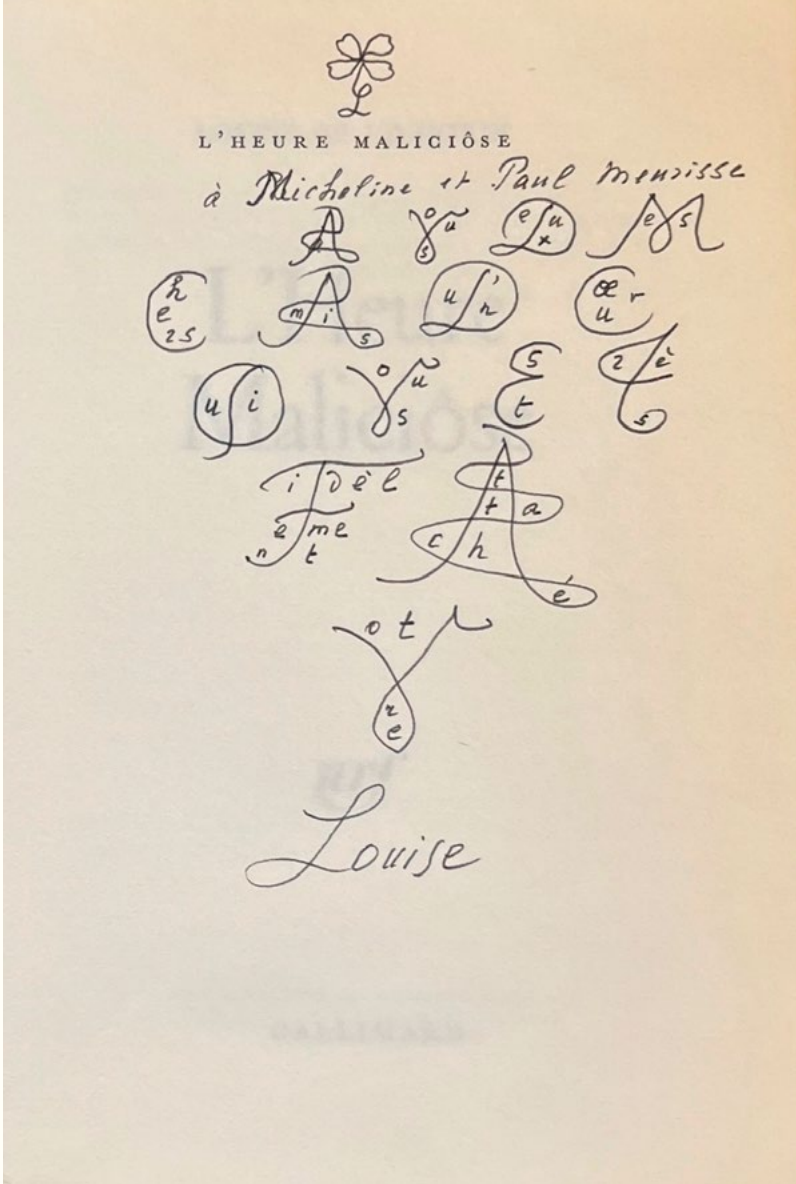 L
L'HEURE MALICIÔSE
à Micheline et Paul Meurisse
A Vous Deux Mes
Chers Amis Un Cœur
Qui Vous Est Très
Fidèlement Attaché
Votre
Louise